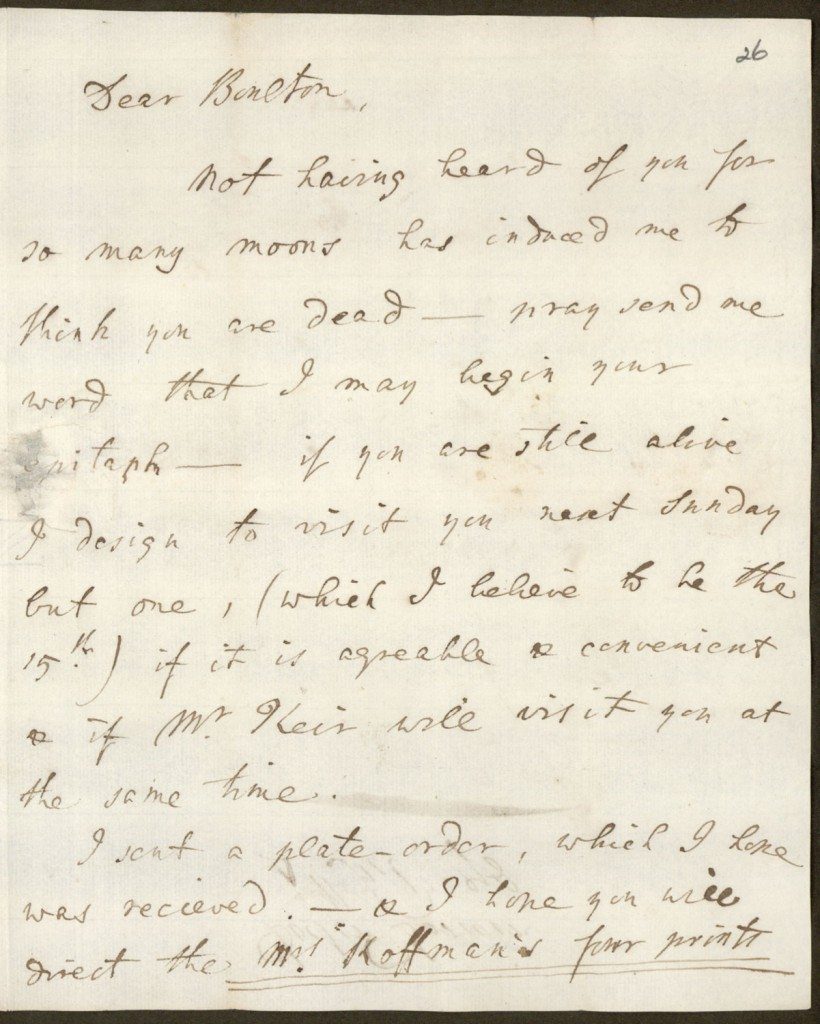 26
Dear Boulton,
Not having heard of you for
so many moons has induced me to
think you are dead — pray send me
word that I may begin your
epitaph — if you are still alive
I design to visit you next Sunday
but one, (which I believe to be the
15th.) if it is agreable & convenient
& if Mr Keir will visit you at
the same time.
I sent a plate-order, which I hope
was recieved. — & I hope you will
direct the Mrs Koffman's four prints